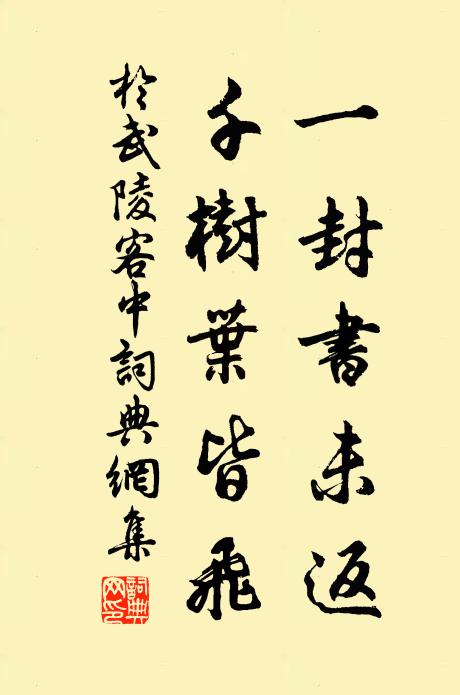 一封書未返
千樹葉皆飛
於武陵客中詞典網集
詞典網印